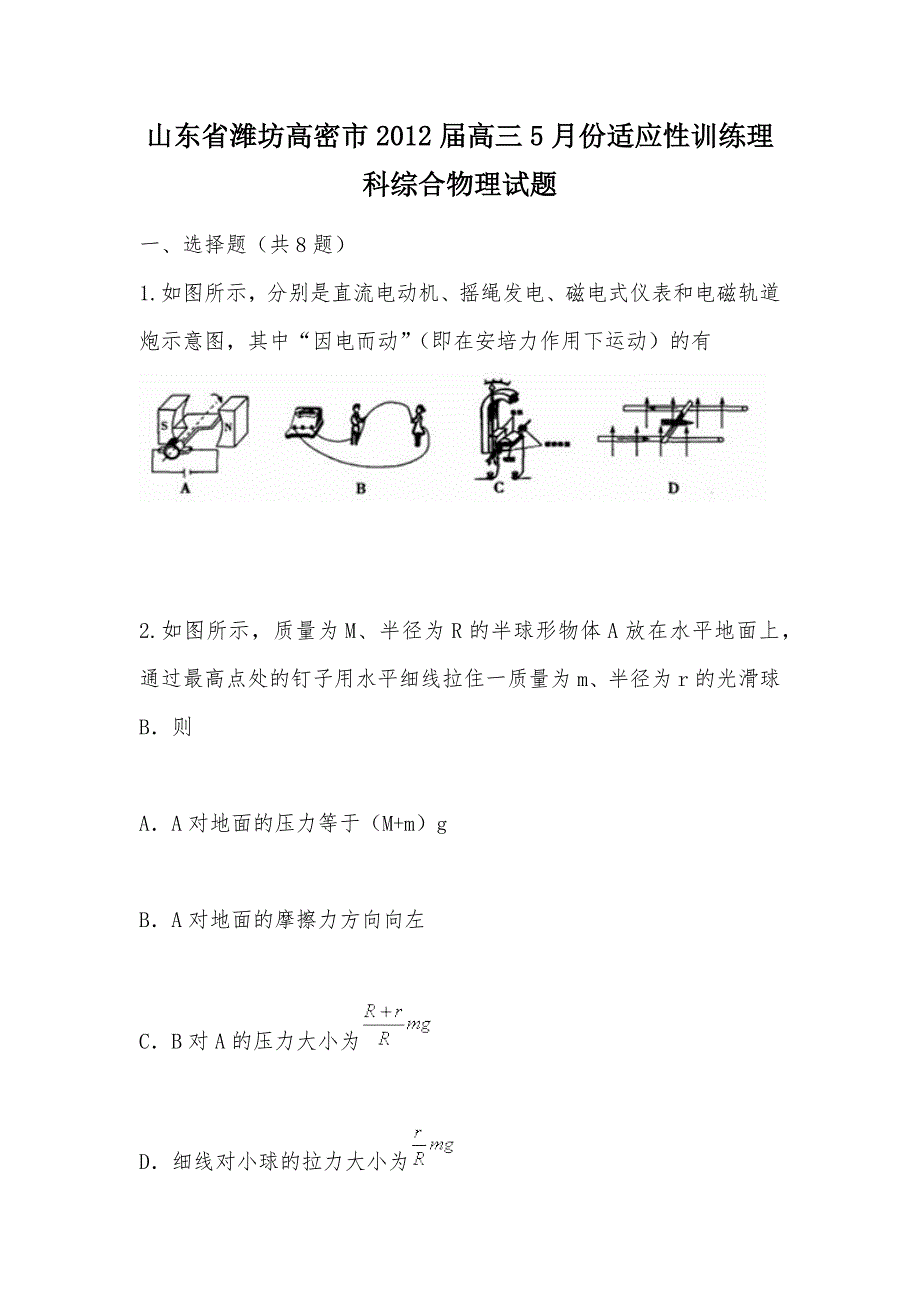 山东省潍坊高密市 2012 届高三 5 月份适应性训练理
科综合物理试题
一、选择题（共 8 题）
1.如图所示，分别是直流电动机、摇绳发电、磁电式仪表和电磁轨道
炮示意图，其中“因电而动”（即在安培力作用下运动）的有
S N
A B C D
2.如图所示，质量为 M、半径为 R 的半球形物体 A 放在水平地面上，
通过最高点处的钉子用水平细线拉住一质量为 m、半径为 r 的光滑球
B．则
A．A 对地面的压力等于（M+m）g
B．A 对地面的摩擦力方向向左
C．B 对 A 的压力大小为 $\frac{R+r}{R}mg$
D．细线对小球的拉力大小为 $\frac{r}{R}mg$